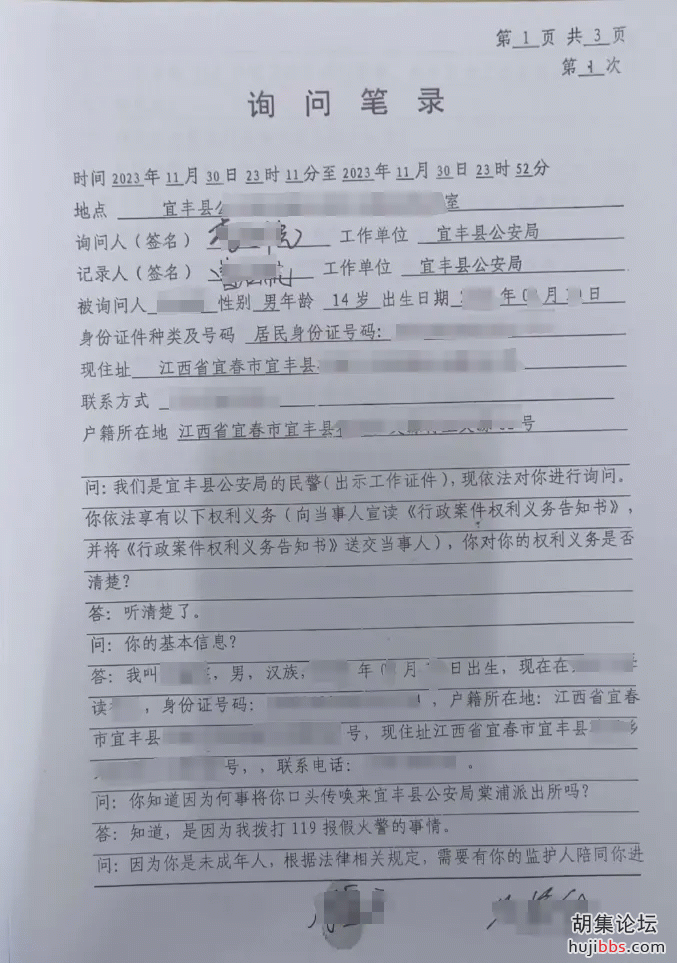 第 1 页 共 3 页
第 1 次
询问笔录
时间 2023 年 11 月 30 日 23 时 11 分至 2023 年 11 月 30 日 23 时 52 分
地点 宜丰县公 室
询问人(签名) 工作单位 宜丰县公安局
记录人(签名) 工作单位 宜丰县公安局
被询问人 性别 男 年龄 14 岁 出生日期 年 0 月 日
身份证件种类及号码 居民身份证号码:
现住址 江西省宜春市宜丰县
联系方式
户籍所在地 江西省宜春市宜丰县 号
问:我们是宜丰县公安局的民警(出示工作证件),现依法对你进行询问。
你依法享有以下权利义务(向当事人宣读《行政案件权利义务告知书》,
并将《行政案件权利义务告知书》送交当事人),你对你的权利义务是否
清楚?
答:听清楚了。
问:你的基本信息?
答:我叫 ,男,汉族, 年 0 月 日出生,现在在
读 ,身份证号码: ,户籍所在地:江西省宜春
市宜丰县 号,现住址江西省宜春市宜丰县 乡
号,,联系电话: 。
问:你知道因为何事将你口头传唤来宜丰县公安局棠浦派出所吗?
答:知道,是因为我拨打 119 报假火警的事情。
问:因为你是未成年人,根据法律相关规定,需要有你的监护人陪同你进
胡集论坛
hujibbs.com